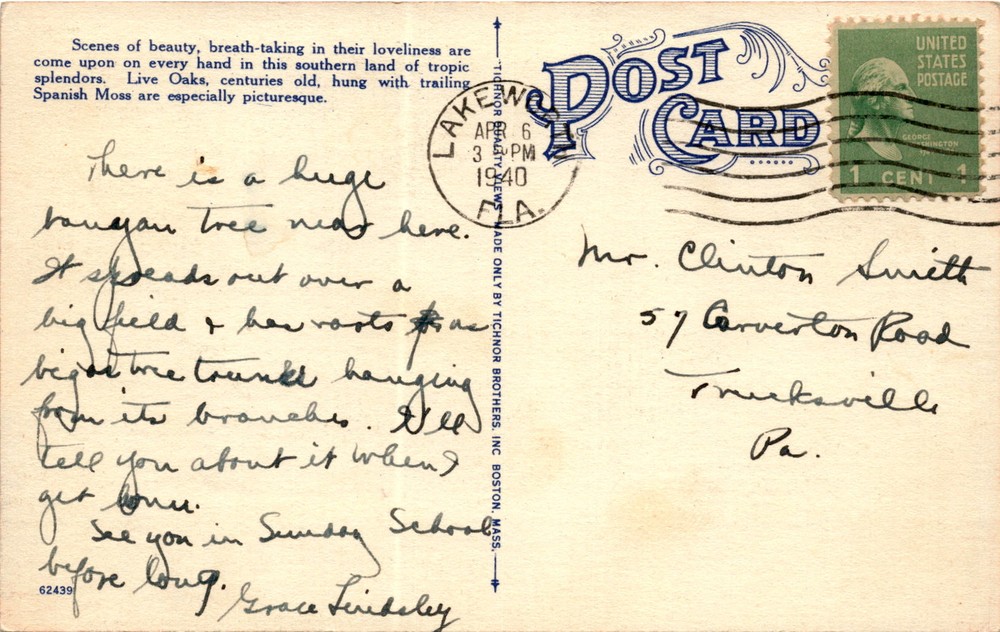 Scenes of beauty, breath-taking in their loveliness are
come upon on every hand in this southern land of tropic
splendors. Live Oaks, centuries old, hung with trailing
Spanish Moss are especially picturesque.
There is a huge
banyan tree near here.
It spreads out over a
big field & has roots as
big as tree trunks hanging
from its branches. I'll
tell you about it when I
get home.
See you in Sunday School
before long.
Grace Lindsley
62439
TICHNOR QUALITY VIEWS. MADE ONLY BY TICHNOR BROTHERS. INC BOSTON. MASS.
POST
CARD
LAKEWO
APR 6
3 PM
1940
FLA.
UNITED
STATES
POSTAGE
GEORGE
WASHINGTON
1 CENT 1
Mr. Clinton Smith
57 Carverton Road
Trucksville
Pa.